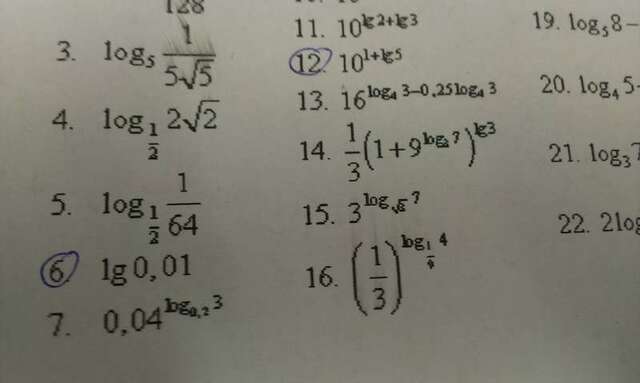 128
3. log₅ 1/(5√5)
4. log_(1/2) 2√2
5. log_(1/2) 1/64
6. lg 0,01
7. 0,04^(log_(0,2) 3)
11. 10^(lg2+lg3)
12. 10^(1+lg5)
13. 16^(log₄ 3−0,25log₄ 3)
14. 1/3(1+9^(log₃ 7))^(lg3)
15. 3^(log_(√3) 7)
16. (1/3)^(log_(1/9) 4)
19. log₅8−
20. log₄ 5
21. log₃7
22. 2log